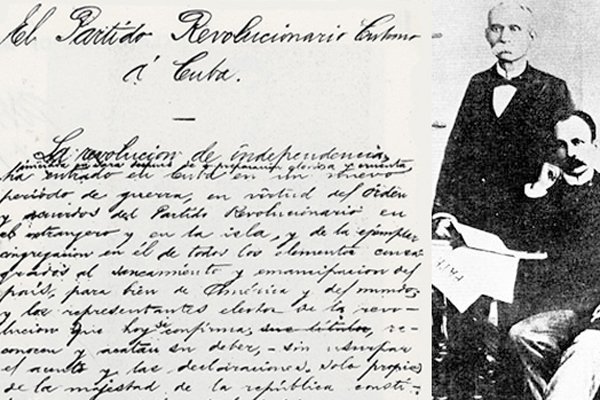 El Partido Revolucionario Cubano
á Cuba.
La revolucion de independencia,
iniciada en Yara despues de preparacion gloriosa y cruenta,
ha entrado en Cuba en un nuevo
periodo de guerra, en virtud del órden
y acuerdos del Partido Revolucionario en
el extranjero y en la isla, y de la ejemplar
congregacion en él de todos los elementos consa-
grados al saneamiento y emancipacion del
país, para bien de América y del mundo;
y los representantes electos de la revo-
lucion que hoy se confirma, sus títulos, re-
conocen y acatan su deber, - sin usurpar
el acento y las declaraciones, solo propias
de la majestad de la república consti-